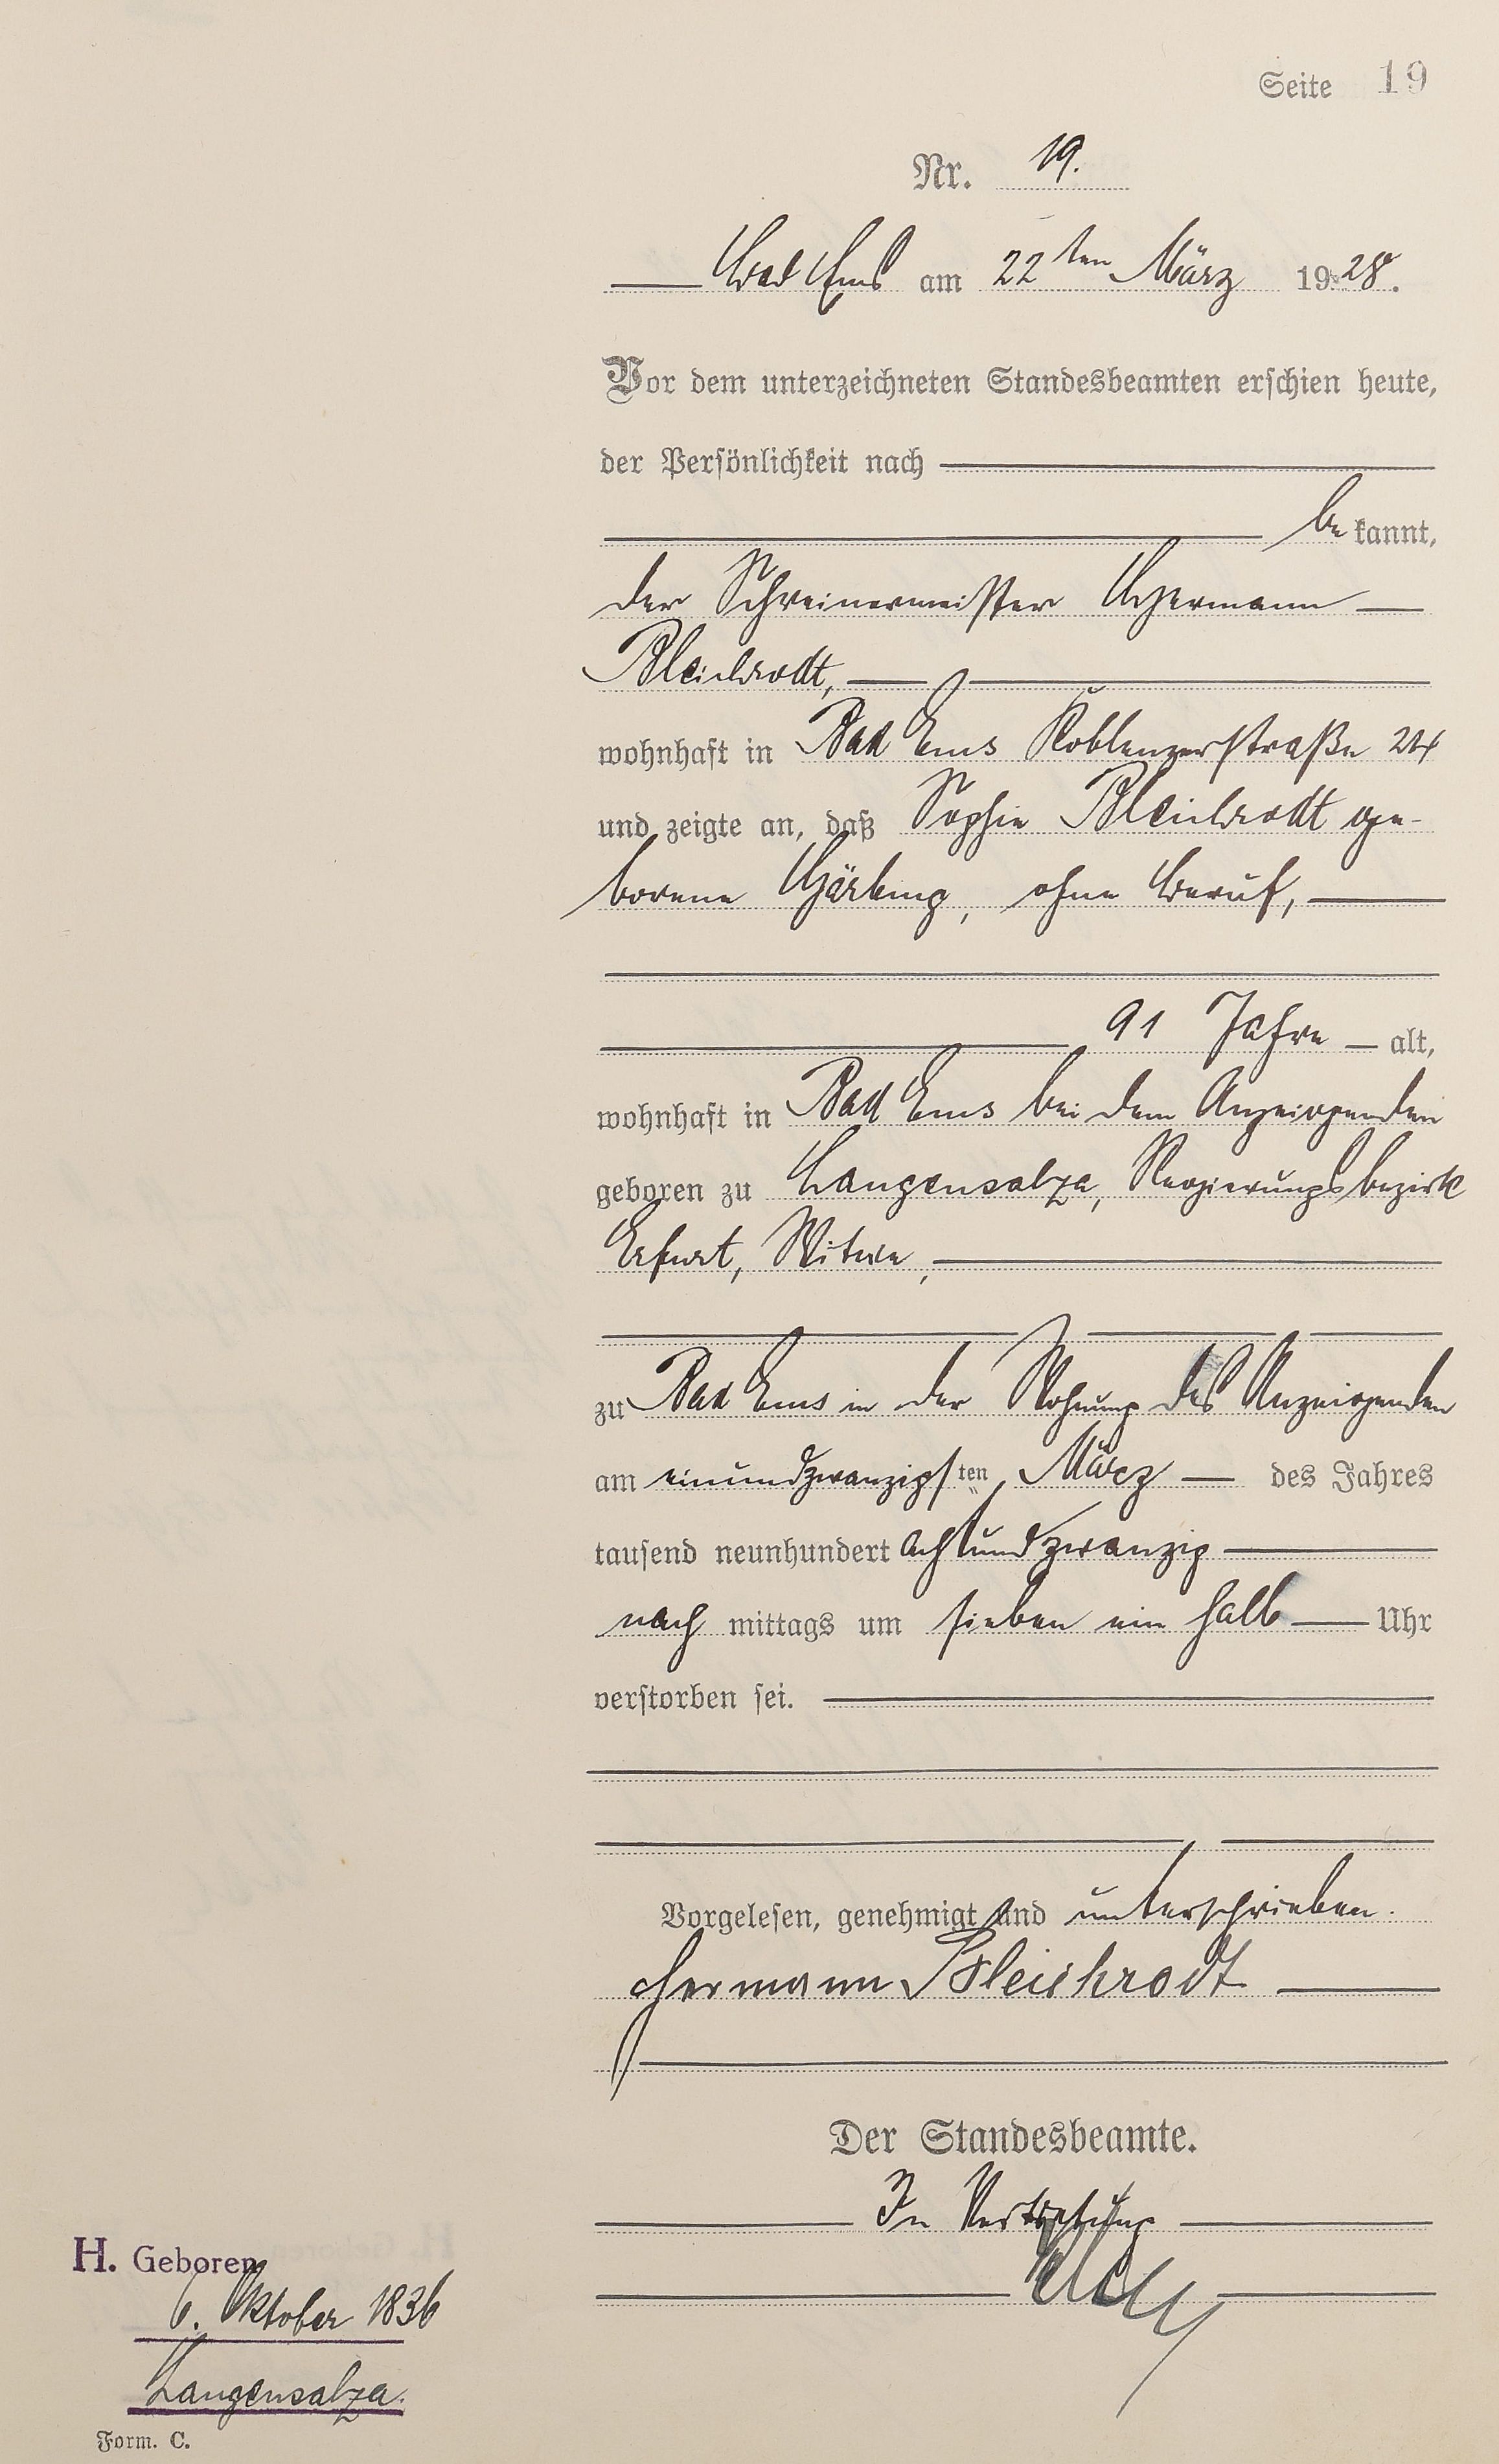 Seite 19
Nr. 19.
Bad Ems am 22ten März 1928.
Vor dem unterzeichneten Standesbeamten erschien heute,
der Persönlichkeit nach
bekannt,
der Schreinermeister Hermann
Bleichrodt,
wohnhaft in Bad Ems Koblenzerstraße 24
und zeigte an, daß Sophie Bleichrodt ge-
borene Härtung, ohne Beruf,
91 Jahre alt,
wohnhaft in Bad Ems bei dem Anzeigenden
geboren zu Langensalza, Regierungsbezirk
Erfurt, Witwe,
zu Bad Ems in der Wohnung des Anzeigenden
am einundzwanzigsten März des Jahres
tausend neunhundert achtundzwanzig
nachmittags um sieben ein halb Uhr
verstorben sei.
Vorgelesen, genehmigt und unterschrieben.
Hermann Bleichrodt
Der Standesbeamte.
In Vertretung
H. Geboren
6. Oktober 1836
Langensalza.
Form. C.